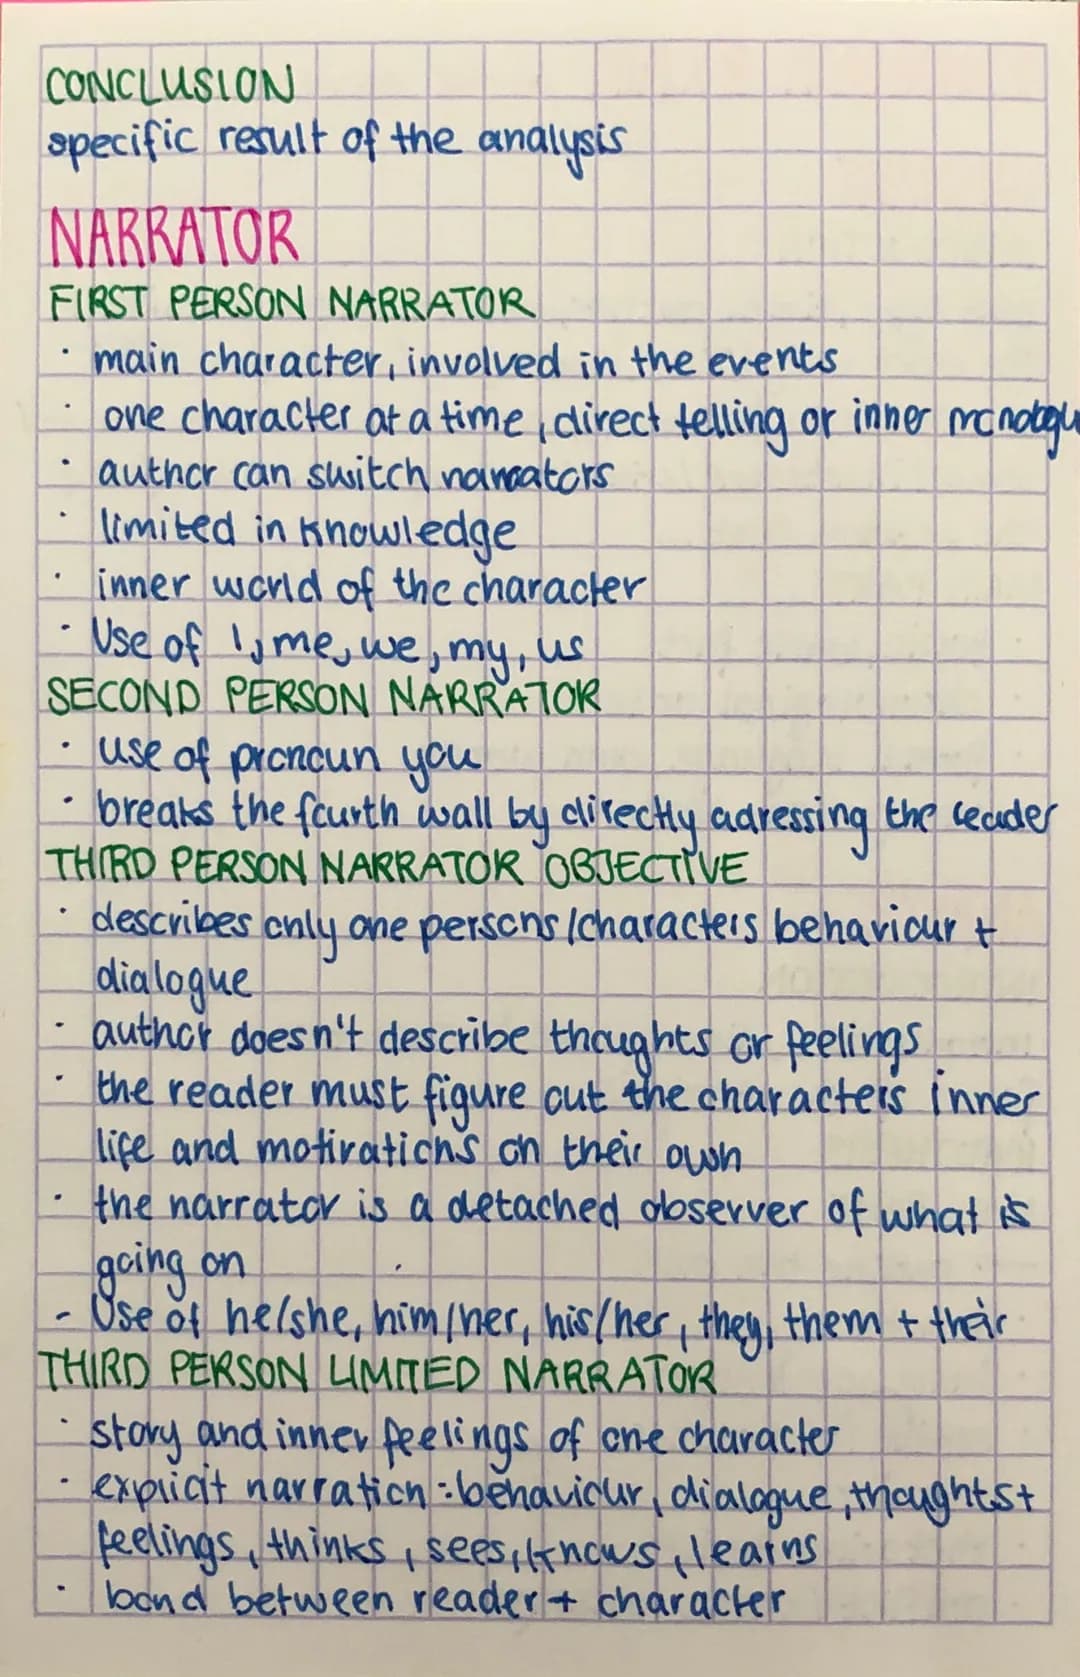 CONCLUSION
specific result of the analysis
NARRATOR
FIRST PERSON NARRATOR
· main character, involved in the events
· one character at a time, direct telling or inner monologu
· author can switch narrators
· limited in knowledge
· inner world of the character
· Use of I, me, we, my, us
SECOND PERSON NARRATOR
· use of pronoun you
· breaks the fourth wall by directly adressing the reader
THIRD PERSON NARRATOR OBJECTIVE
· describes only one persons/characters behaviour +
dialogue
· author doesn't describe thoughts or feelings
· the reader must figure out the characters inner
life and motivations on their own
· the narrator is a detached observer of what is
going on
- Use of he/she, him/her, his/her, they, them + their
THIRD PERSON LIMITED NARRATOR
· story and inner feelings of one character
· explicit narration: behaviour, dialogue, thoughts +
feelings, thinks, sees, knows, learns
· bond between reader + character